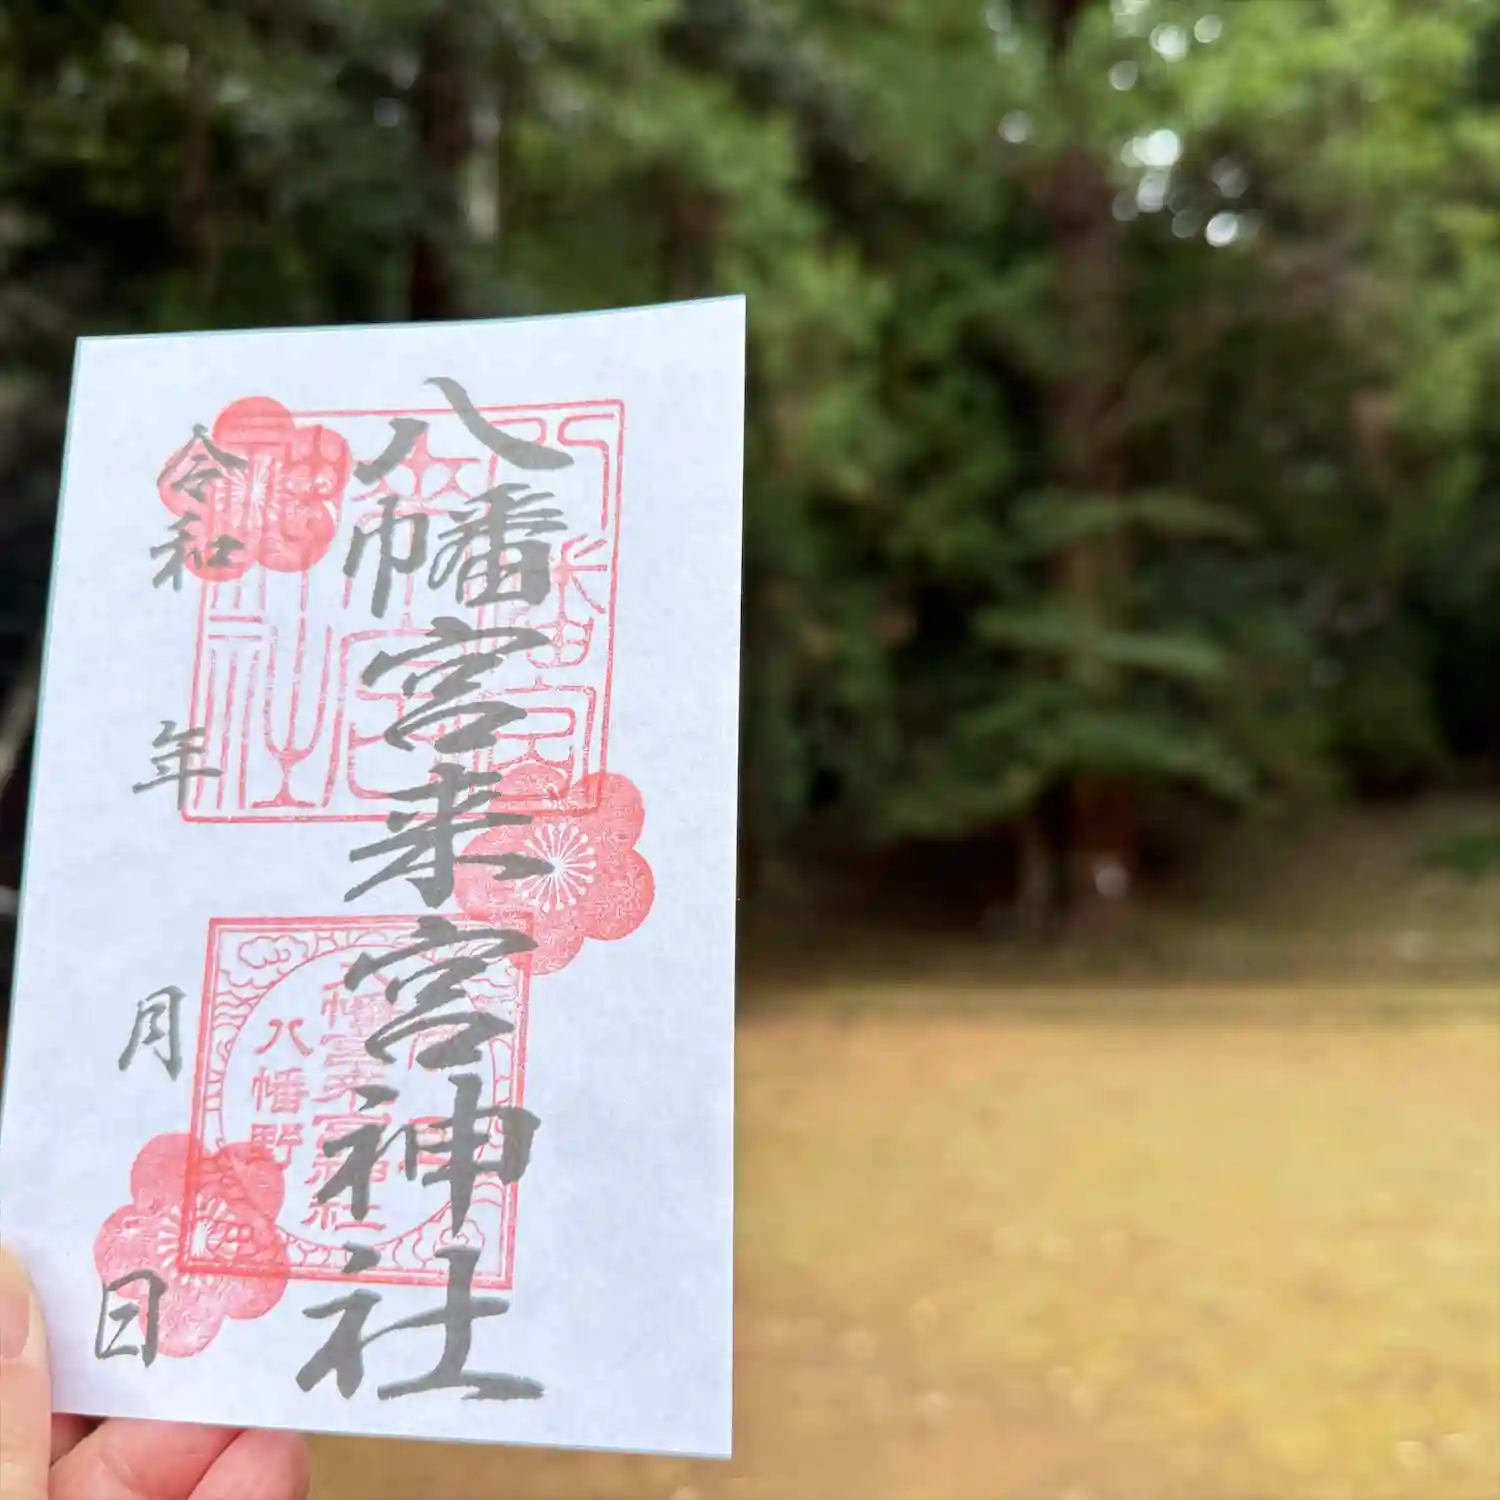 八幡宮来宮神社
令和 年 月 日
八幡宮来宮神社
八幡野